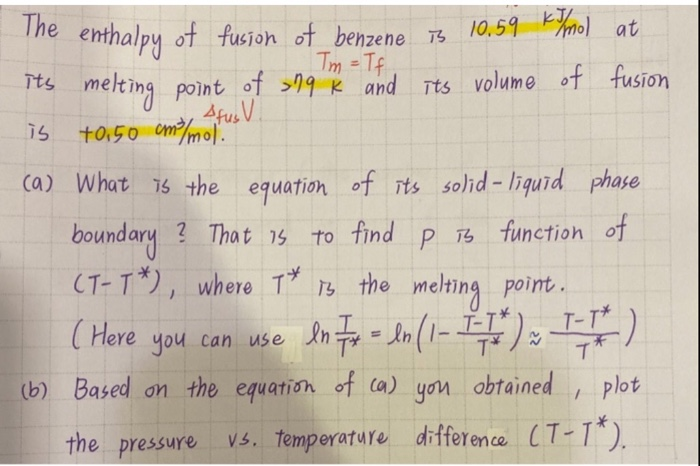 The enthalpy of fusion of benzene is 10.59 kJ/mol at
Tm = Tf
its melting point of 279 K and its volume of fusion
ΔfusV
is +0.50 cm³/mol.
(a) What is the equation of its solid-liquid phase
boundary? That is to find p is function of
(T-T*), where T* is the melting point.
(Here you can use ln T/T* = ln(1- T-T*/T*) ≈ T-T*/T*)
(b) Based on the equation of (a) you obtained, plot
the pressure vs. temperature difference (T-T*).